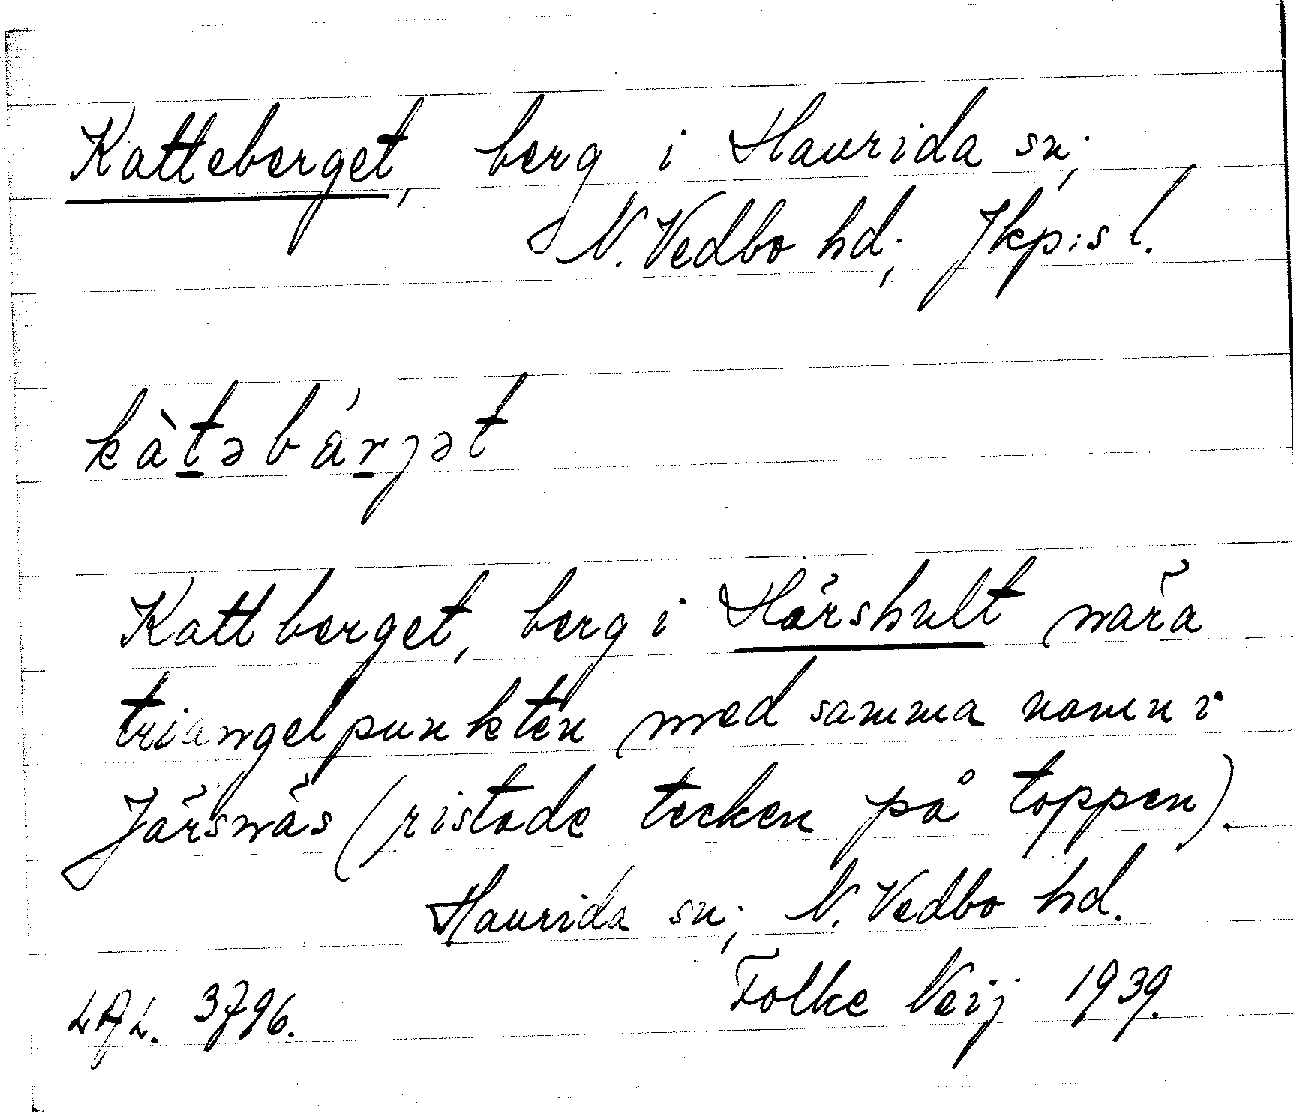 Katteberget, berg i Haurida sn;
N. Vedbo hd; Jkp:s l.
kàtəbárjət
Kattberget, berg i Härshult nära
triangelpunkten med samma namn i
Järsnäs (ristade tecken på toppen).
Haurida sn; N. Vedbo hd.
Folke Neij 1939.
LAL. 3796.